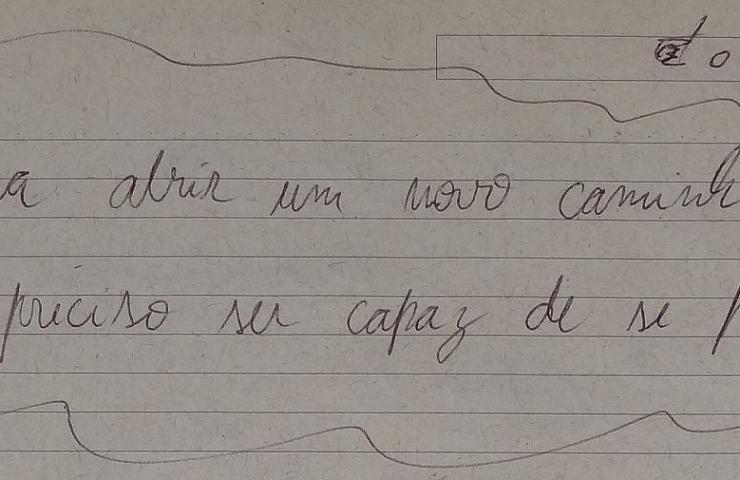 a abrir um novo caminh
preciso ser capaz de se p